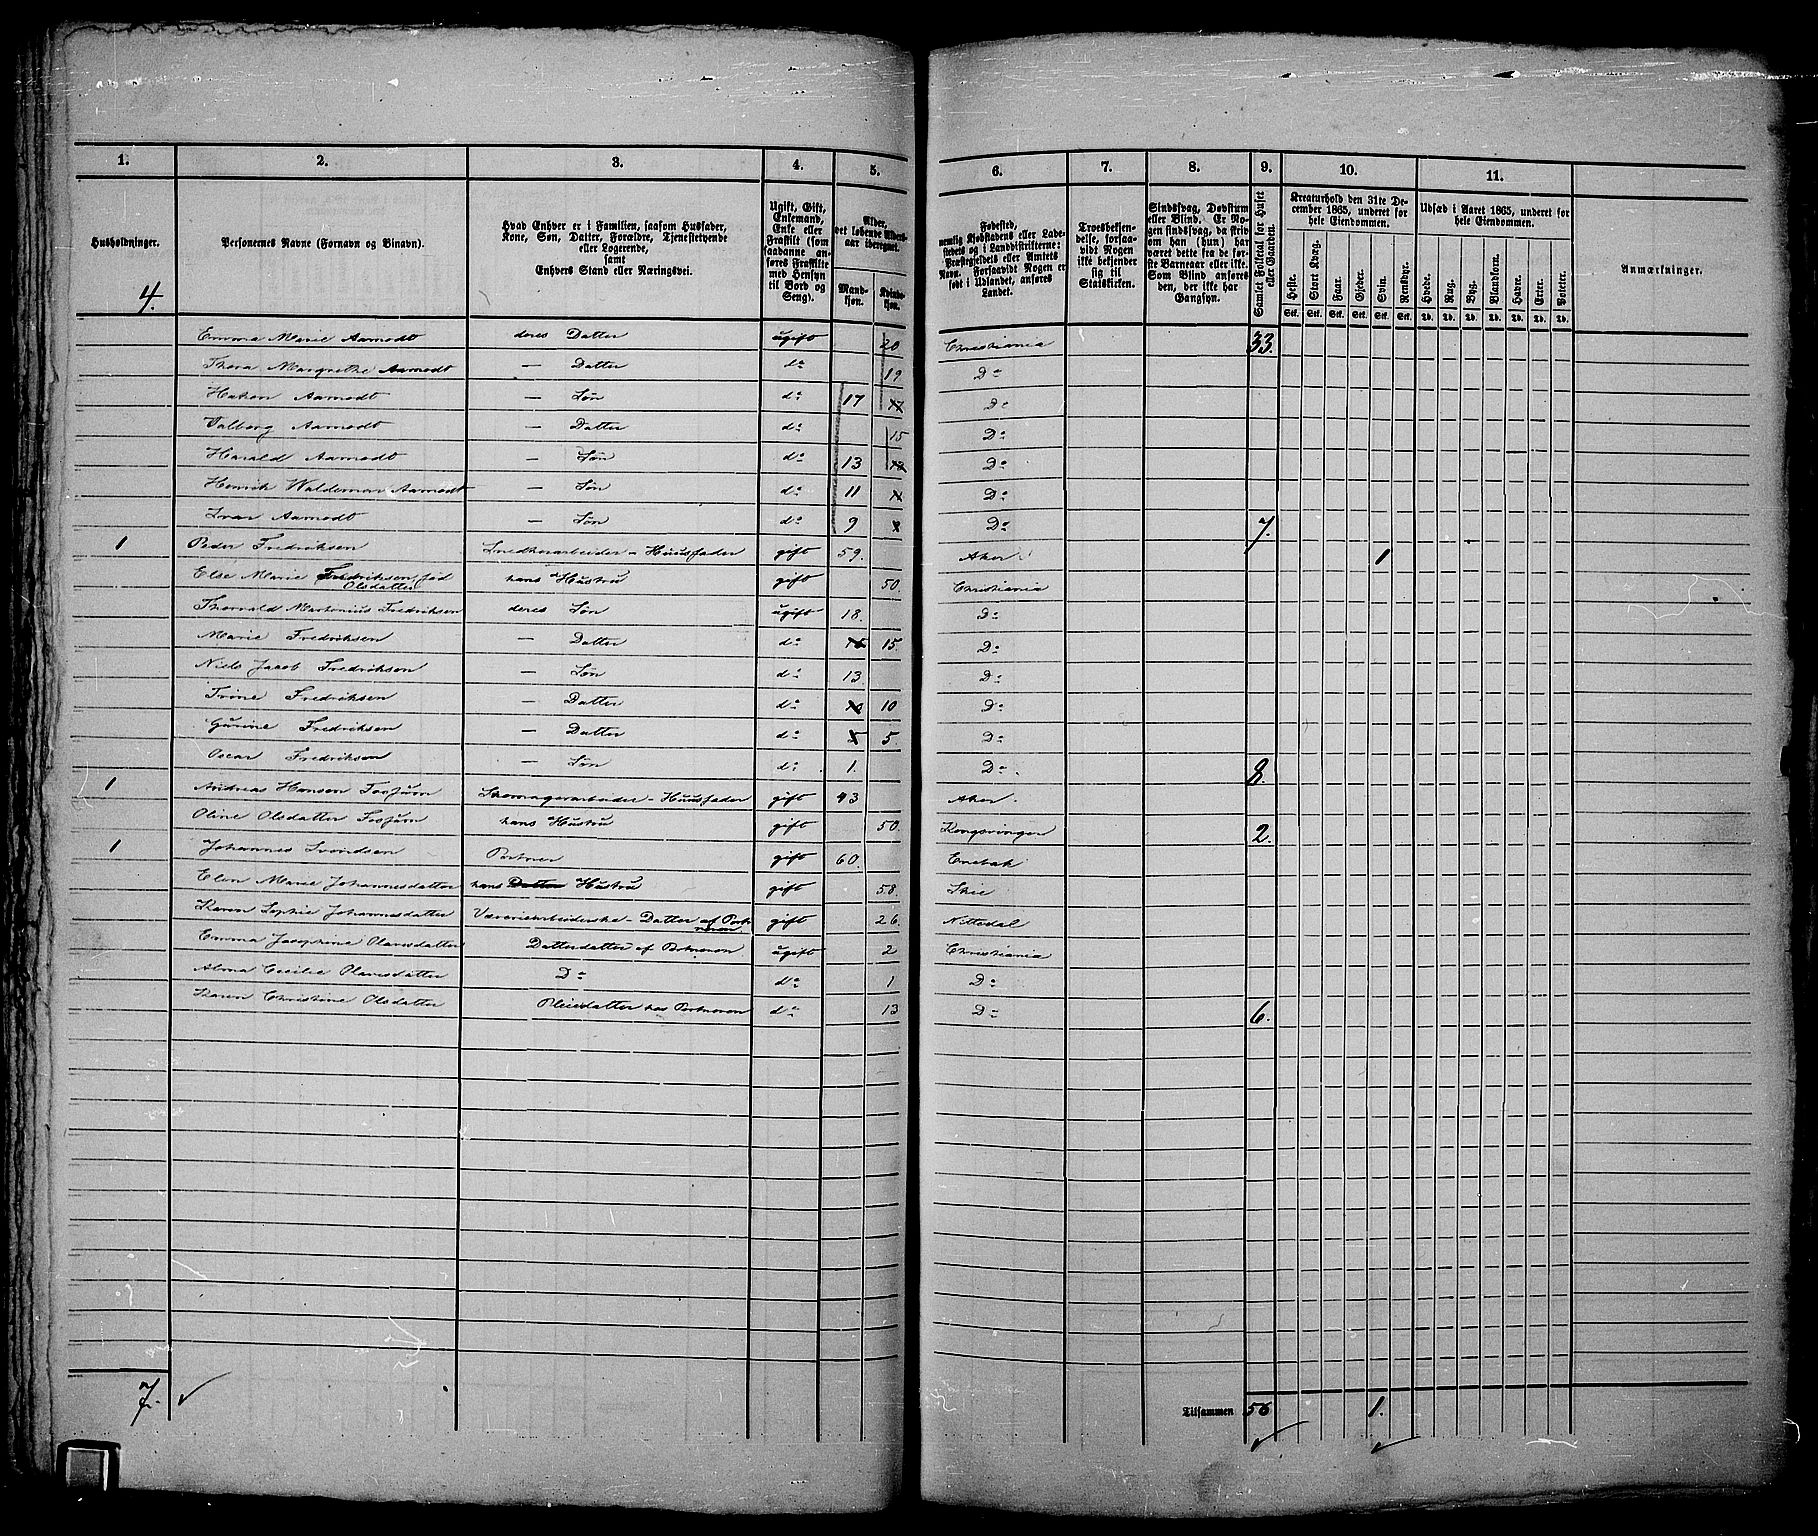 1. 2. 3. 4. 5. 6. 7. 8. 9. 10. 11.
Husholdninger.
Personernes Navne (Fornavn og Binavn).
Hvad Enhver er i Familien, saasom Husfader,
Kone, Søn, Datter, Forældre, Tjenestetyende
eller Logerende,
samt
Enhvers Stand eller Næringsvei.
Ugift, Gift,
Enkemand,
Enke eller
Fraskilt (som
saadanne an-
føres Fraskilte
med Hensyn
til Bord og
Seng).
Alder,
det løbende Alders-
aar iberegnet.
Mand-
kjøn.
Kvinde-
kjøn.
Fødested,
nemlig Kjøbstadens eller Lade-
stedets og i Landdistrikterne:
Præstegjeldets eller Amtets
Navn. Forsaavidt Nogen er
født i Udlandet, anføres
Landet.
Troesbekjen-
delse, forsaa-
vidt Nogen
ikke bekjender
sig til
Statskirken.
Sindssvag, Døvstum
eller Blind. Er No-
gen sindssvag, da skriv
om han (hun) har
været dette fra de før-
ste Barneaar eller ikke.
Som Blind anføres
den, der ikke har
Gangsyn.
Samlet Folketal for Huset
eller Gaarden.
Kreaturhold den 31te De-
cember 1865, underet for
hele Eiendommen.
Heste. Stort Kvæg. Faar. Gjeder. Svin. Rensdyr.
Stk. Stk. Stk. Stk. Stk. Stk.
Udsæd i Aaret 1865, underet for
hele Eiendommen.
Hvede. Rug. Byg. Blandkorn. Havre. Erter. Poteter.
Td. Td. Td. Td. Td. Td. Td.
Anmærkninger.
4.
Emma Marie Aamodt deres Datter ugift 20 Christiania 33.
Thora Margrethe Aamodt — Datter do 19 Do
Hakon Aamodt — Søn do 17 Do
Valborg Aamodt — Datter do 15 Do
Harald Aamodt — Søn do 13 Do
Henrik Waldemar Aamodt — Søn do 11 Do
Ivar Aamodt — Søn do 9 Do 7.
1 Peder Fredriksen Snedkerarbeider - Huusfader gift 59. Aker. 1
Else Marie Fredriksen, fød hans Hustru gift 50. Christiania
Olsdatter
Thorvald Martonius Fredriksen deres Søn ugift 18. Do
Marie Fredriksen — Datter do 15. Do
Niels Jacob Fredriksen — Søn do 13 Do
Trine Fredriksen — Datter do 10 Do
Gurine Fredriksen — Datter do 5. Do
Oscar Fredriksen — Søn do 1. Do. 8.
1 Andreas Hansen Skomagerarbeider - Huusfader gift 43 Aker.
Oline Olsdatter hans Hustru gift 50. Kongsvinger 2.
1 Johannes Svendsen Portner gift 60. Enebak
Elen Marie Johannesdatter hans Datter Hustru gift 58. Skie
Karen Sophie Johannesdatter Væveriarbeiderske - Datter af Port- gift 26. Nittedal
neren
Emma Josephine Olavesdatter Datterdatter af Portneren ugift 2 Christiania
Alma Cecilie Olavesdatter Do do 1 Do
Karen Christine Olsdatter Pleiedatter hos Portneren do 13 Do 6.
7. Tilsammen 56 1.